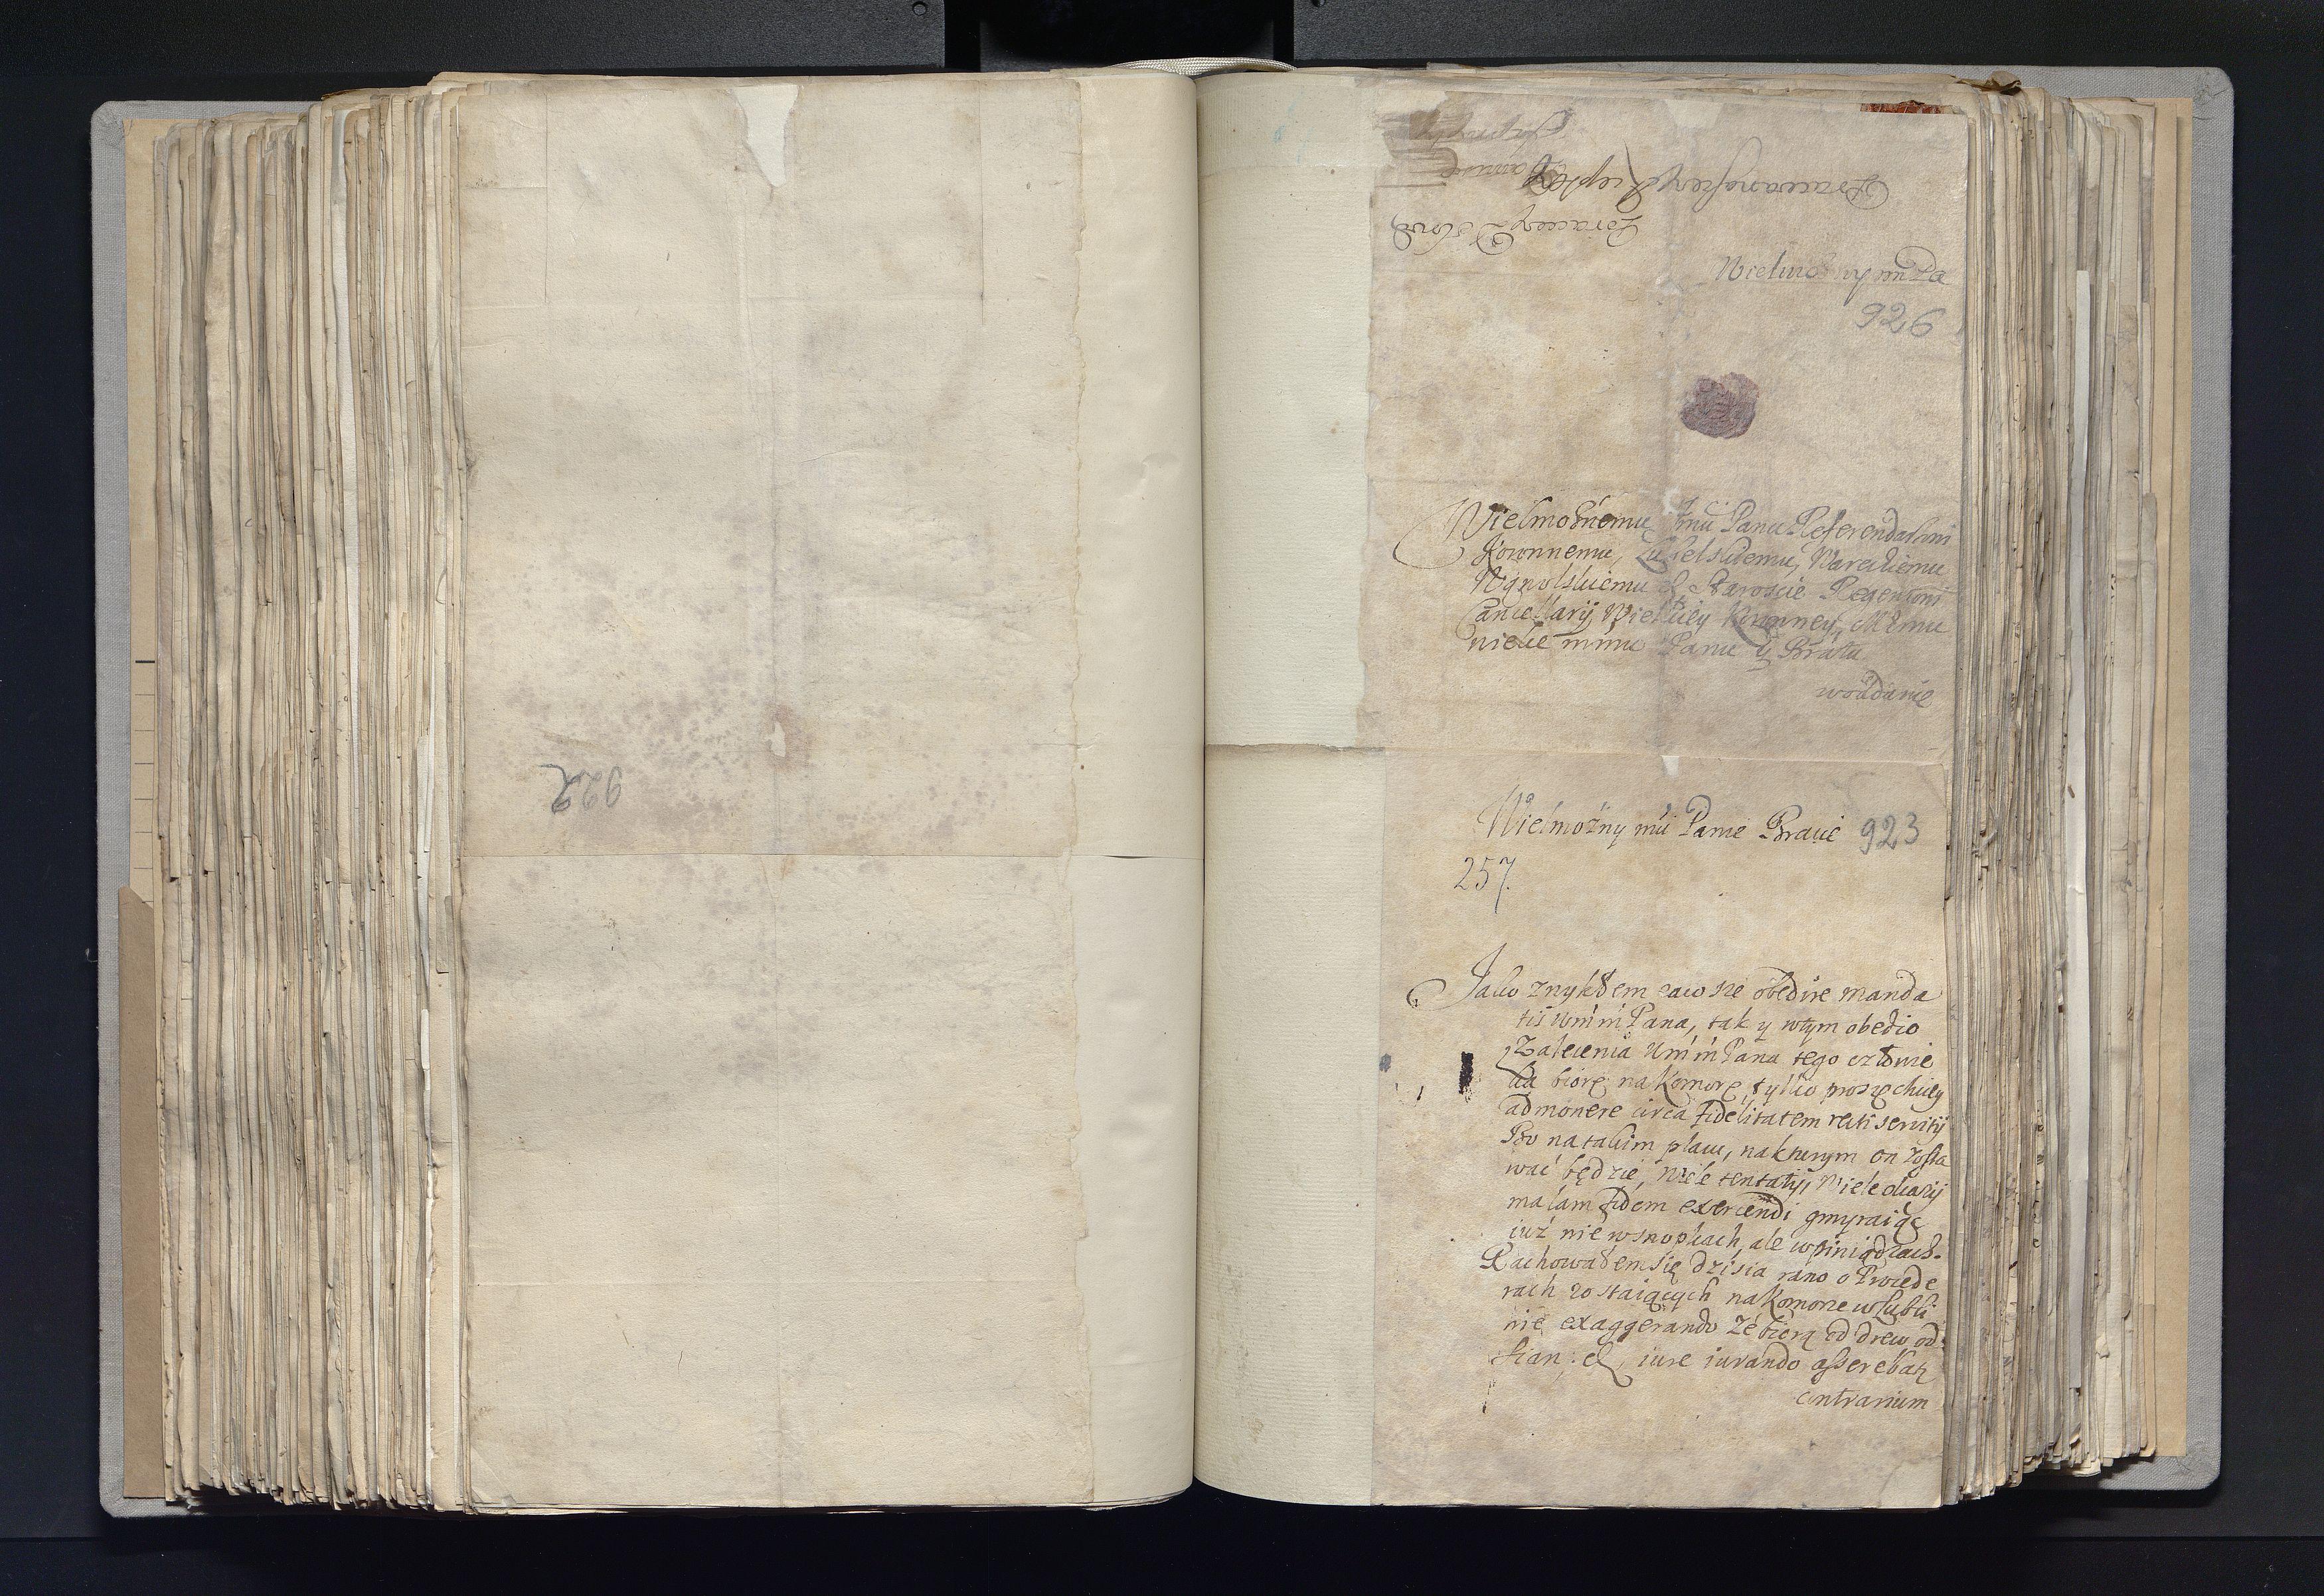 922
Wielmożny mu Pa
926
Wielmożnemu Jmci Panu Referendarzowi
Koronnemu, Lubelskiemu, Wareckiemu
& Staroscie Regentowi
Cancellarij Wielkiey Koronney, Memu
wielce mmu Panu y Bratu
w oddanie
Wielmożny mći Panie Bracie 923
257.
Jako zwykłem zawsze obedire manda
tis Wmm Pana, tak y wtym obedio
Zalecenia Wm m Pana tego człowie
ka biorę na Komorę, tylko proszę chciey
admonere circa fidelitatem recti servitij
Bo na takim placu, na ktorym on zosta
wać będzie, wiele tentatij, wiele okazij
malam fidem exercendi gmyraiąc
iuż nie w snopkach, ale w piniądzach.
Rachowałem się dzisia rano o Prwede
rach zostaiących na Komorze w Lubli
nie exaggerando że biorą od drew od
fian: & iure iurando asserebat
contrarium